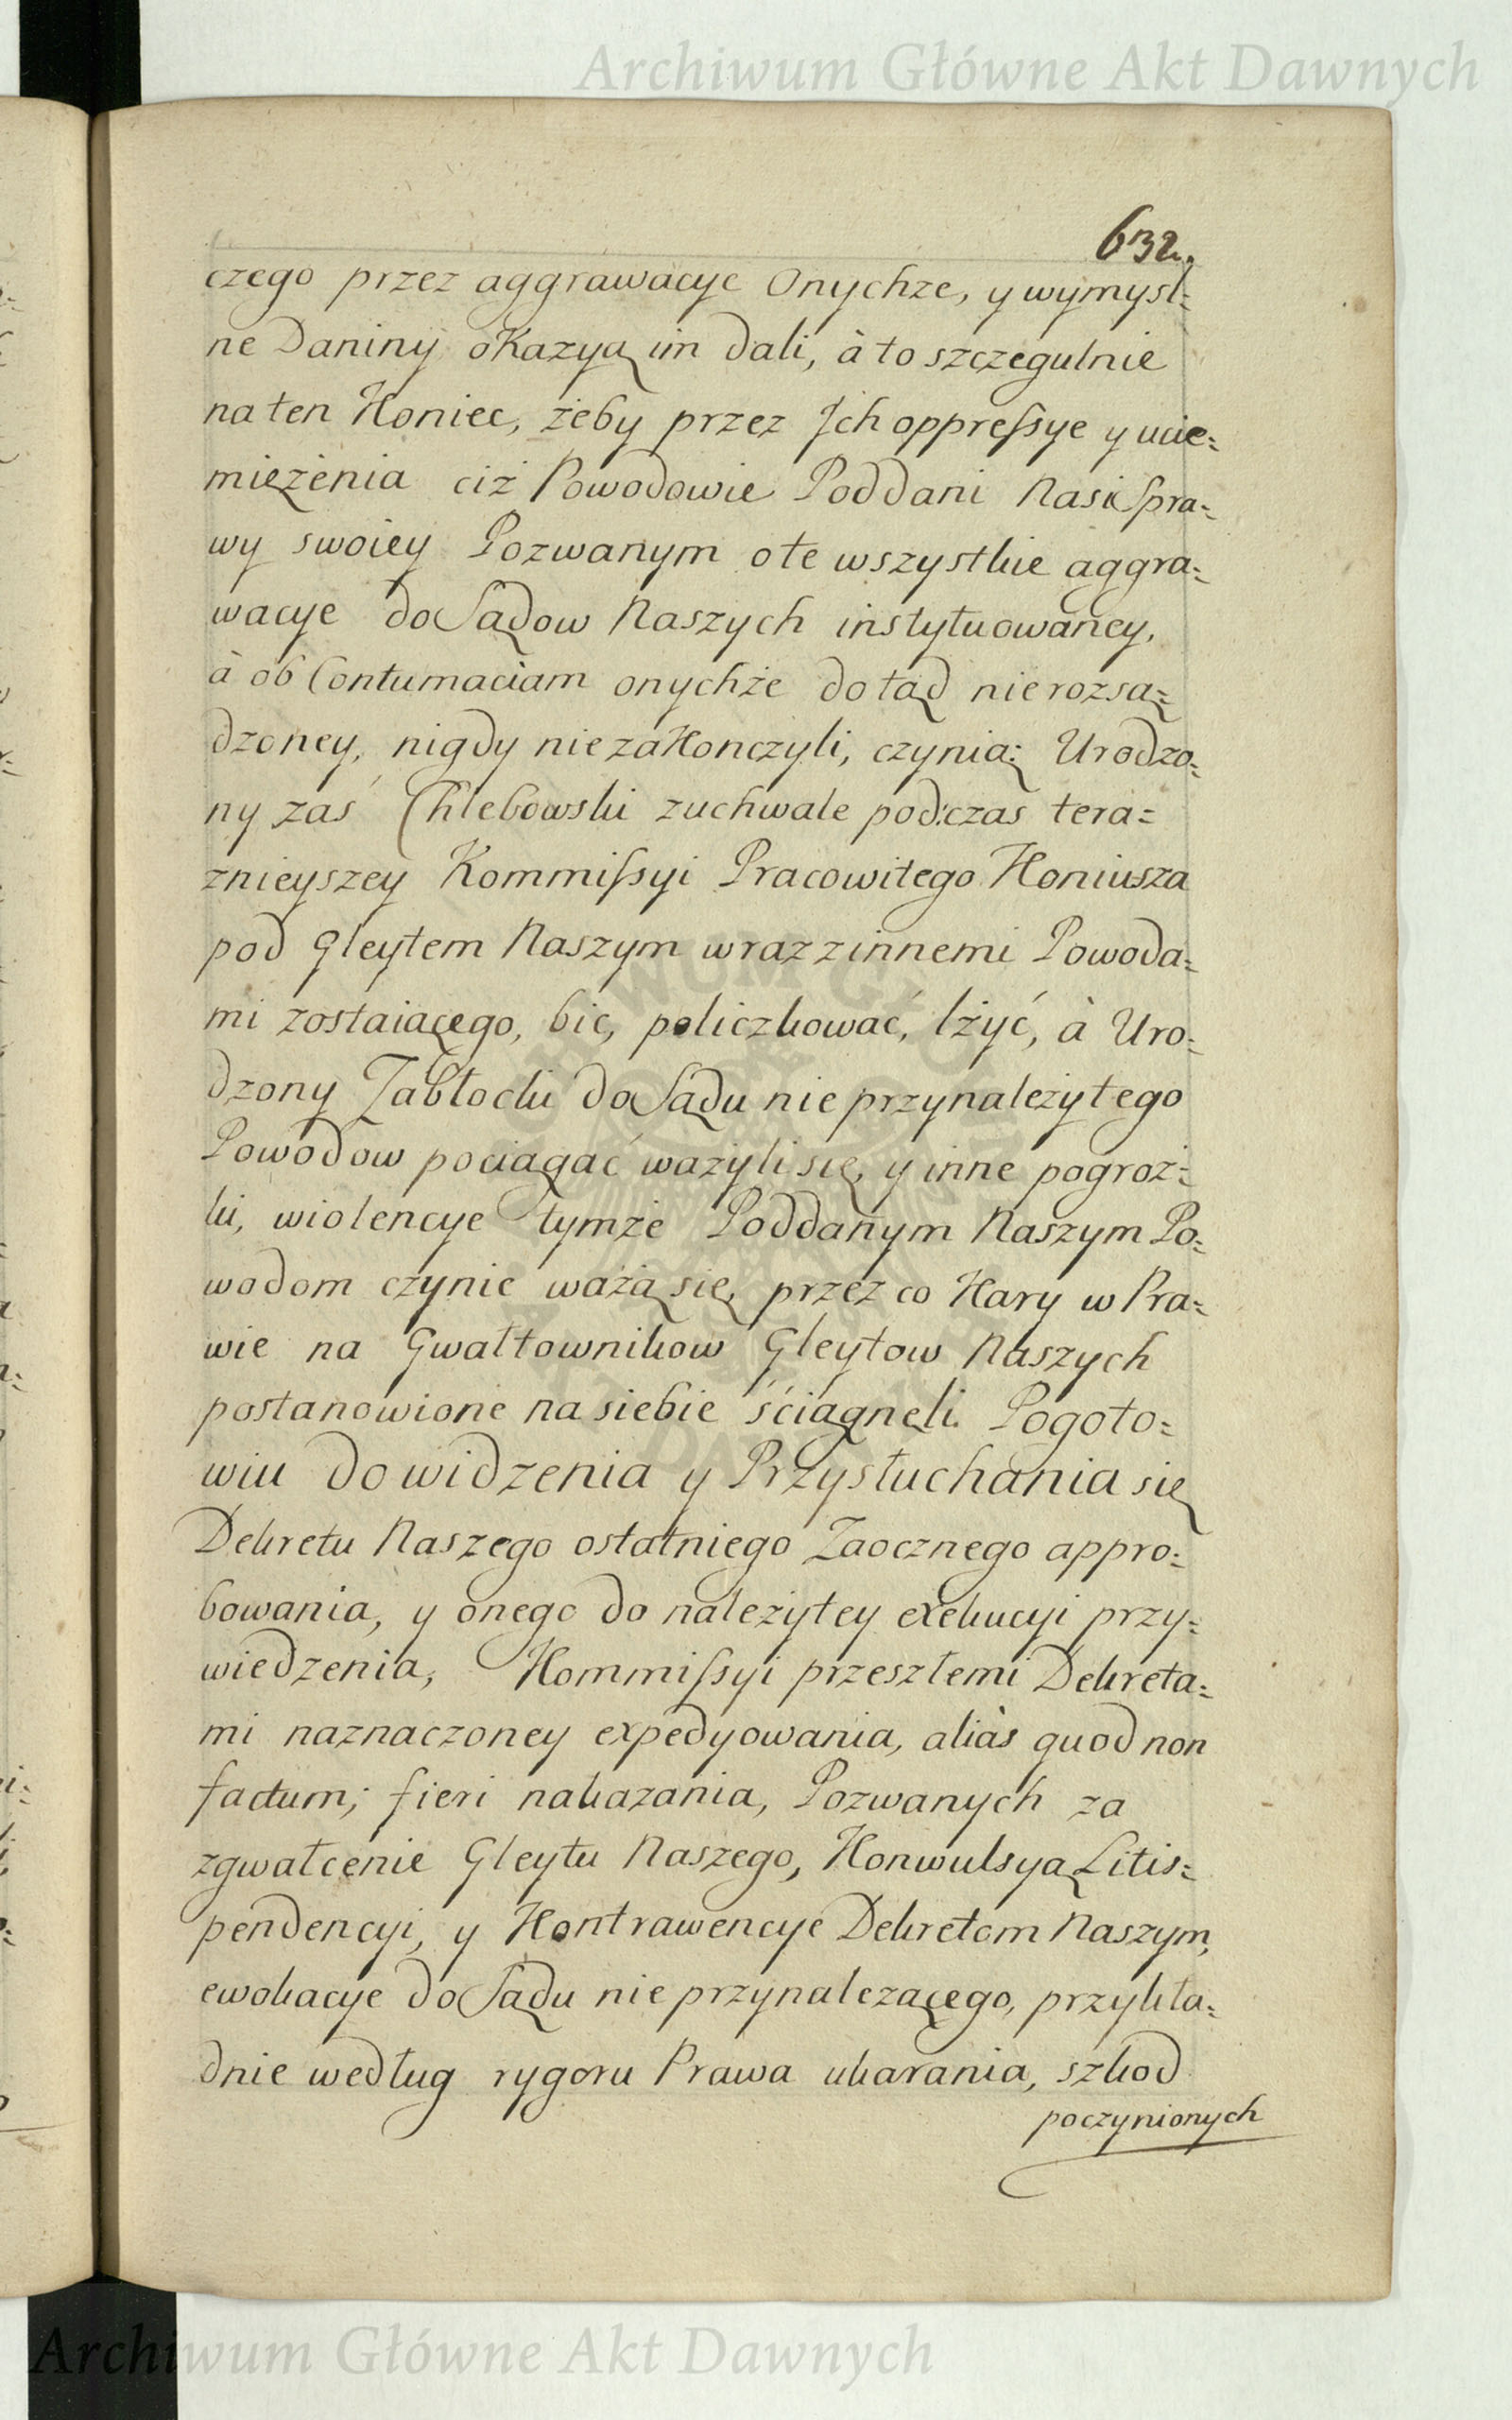 Archiwum Główne Akt Dawnych
632.
czego przez aggrawacye Onychże, y wymysl=
ne Daniny okazyą im dali, à to szczegulnie
na ten Koniec, żeby przez Jch oppreſsye y ucie=
miężenia ciż Powodowie Poddani Nasi Spra=
wy swoiey Pozwanym o te wszystkie aggra=
wacye do Sądow Naszych instytuowaney,
à ob Contumaciam onychże dotąd nierozsą=
dzoney, nigdy niezakonczyli, czynią: Urodzo=
ny zaś Chlebowski zuchwale podczas tera=
znieyszey Kommiſsyi Pracowitego Koniusza
pod Gleytem Naszym wraz z innemi Powoda=
mi zostaiącego, bic, policzkować, lżyć, à Uro=
dzony Zabłocki do Sądu nie przynależytego
Powodow pociągać ważyli się, y inne pogroż=
ki, wiolencye tymże Poddanym Naszym Po=
wodom czynic ważą się, przez co Kary w Pra=
wie na Gwałtownikow Gleytow Naszych
postanowione na siebie ściągneli. Pogoto=
wiu do widzenia y Przysłuchania się
Dekretu Naszego ostatniego Zaocznego appro=
bowania, y onego do należytey exekucyi przy=
wiedzenia, Kommiſsyi przeszłemi Dekreta=
mi naznaczoney expedyowania, aliàs quod non
factum; fieri nakazania, Pozwanych za
zgwałcenie Gleytu Naszego, Konwulsyą Litis=
pendencyi, y Kontrawencye Dekretom Naszym,
ewokacye do Sądu nie przynalezącego, przykła=
dnie według rygoru Prawa ukarania, szkod
poczynionych
Archiwum Główne Akt Dawnych